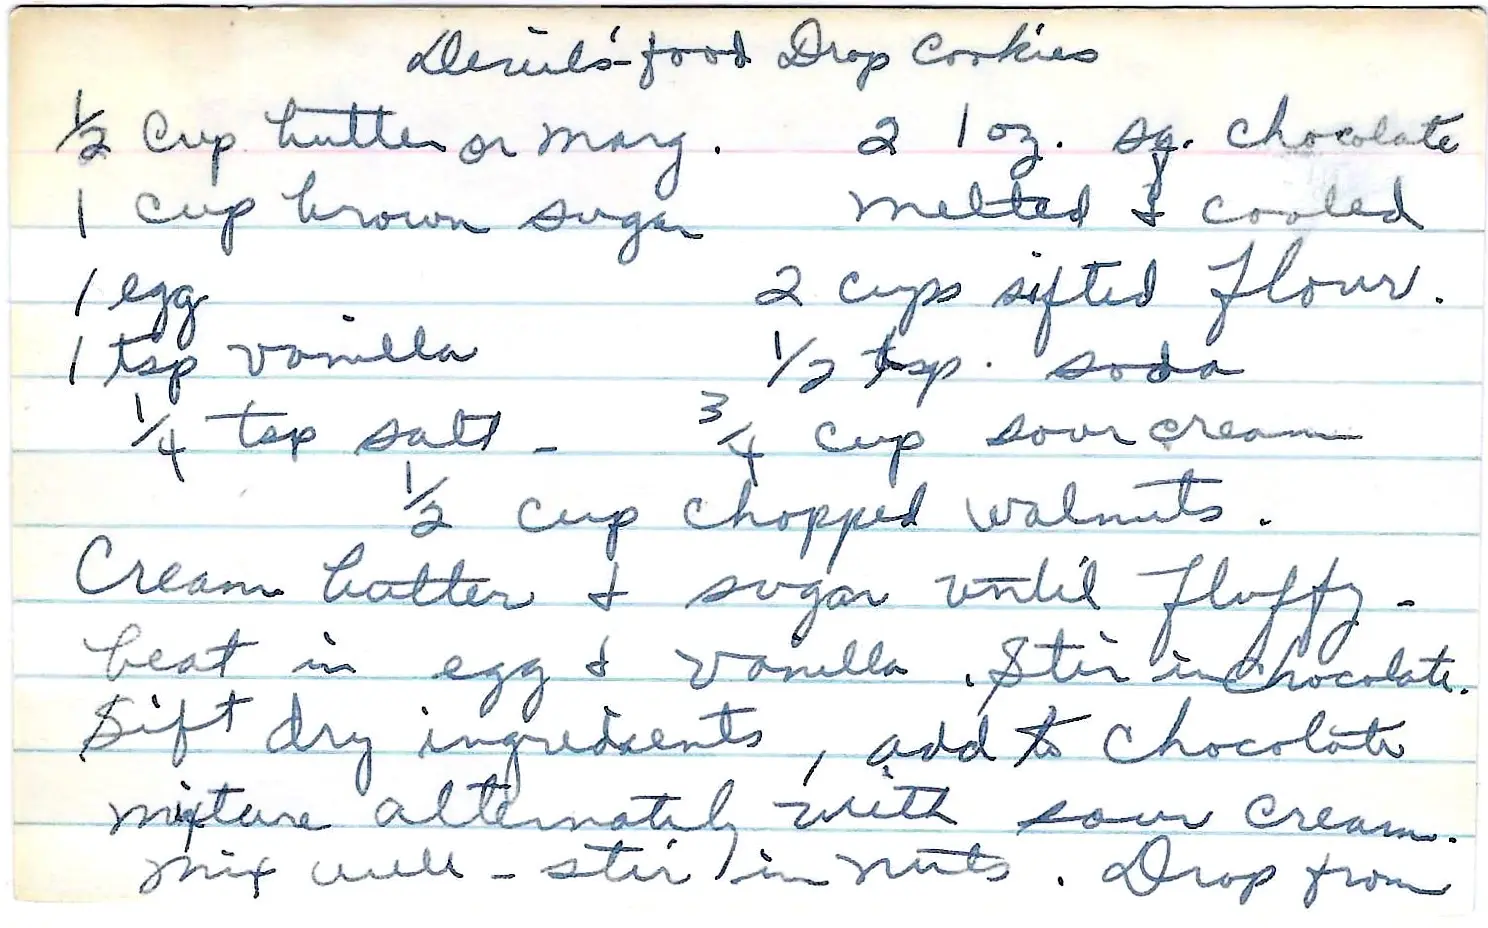 Devil's-food Drop Cookies
1/2 Cup butter or marg. 2 1 oz. sq. chocolate
1 cup brown sugar melted & cooled
1 egg 2 cups sifted flour.
1 tsp vanilla 1/2 tsp. soda
1/4 tsp salt - 3/4 cup sour cream
1/2 cup chopped walnuts.
Cream butter & sugar until fluffy -
beat in egg & vanilla. Stir in chocolate.
Sift dry ingredients, add to chocolate
mixture alternately with sour cream.
Mix well - stir in nuts. Drop from